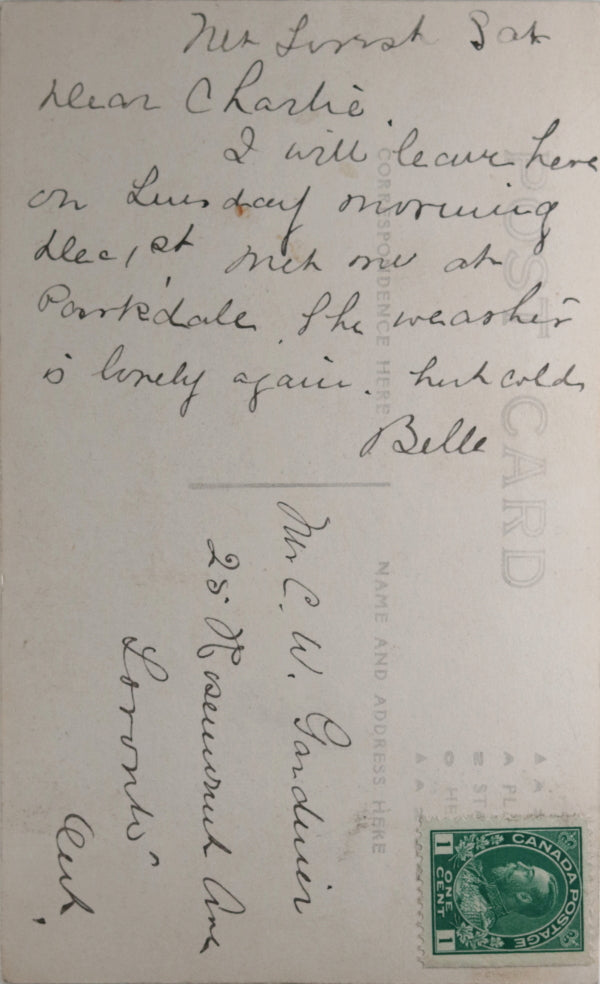 Mt Forest Sat
Dear Charlie.
I will leave here
on Tuesday morning
Dec 1st, meet me at
Parkdale. The weather
is lovely again. but cold
Belle
POST CARD
CORRESPONDENCE HERE
NAME AND ADDRESS HERE
Mr C. W. Gardiner
25 Rosemount Ave
Toronto
Ont.
CANADA POSTAGE
1 ONE CENT 1